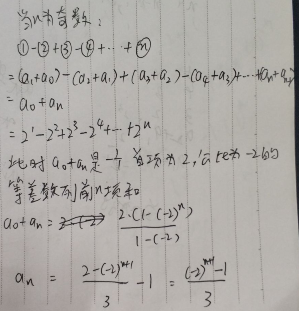 当n为奇数:
①-②+③-④+…+ⓝ
=(a₁+a₀)-(a₂+a₁)+(a₃+a₂)-(a₄+a₃)+…+(aₙ+aₙ₋₁)
=a₀+aₙ
=2¹-2²+2³-2⁴+…+2ⁿ
此时 a₀+aₙ是一个首项为2,公比为-2的
等差数列前n项和
a₀+aₙ = 2·(1-(-2)ⁿ) / 1-(-2)
aₙ = 2-(-2)ⁿ⁺¹ / 3 - 1 = (-2)ⁿ⁺¹-1 / 3